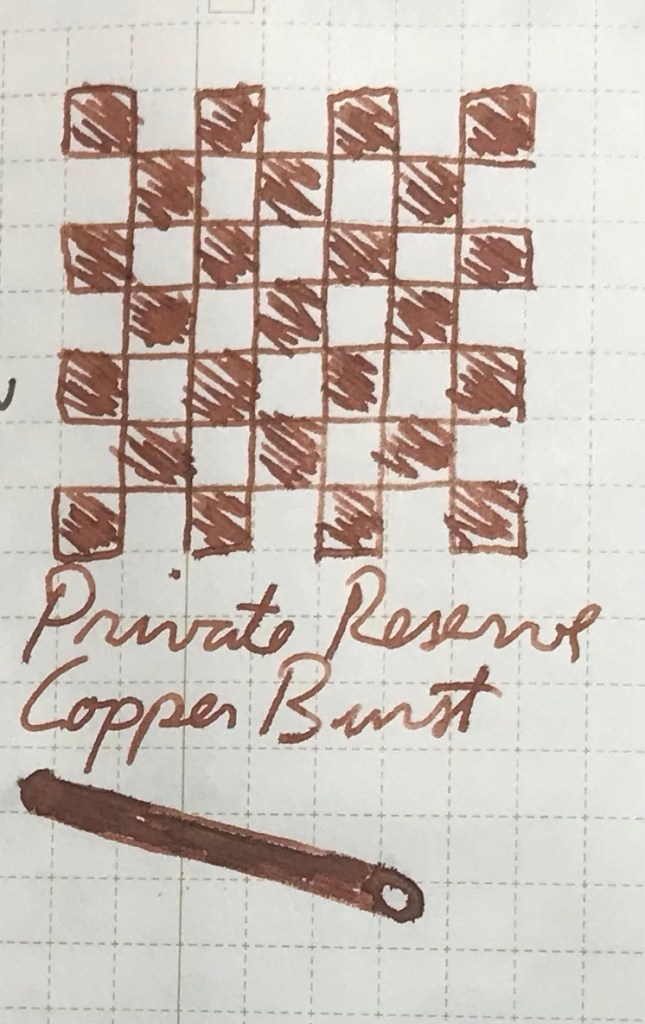 Private Reserve
Copper Burst